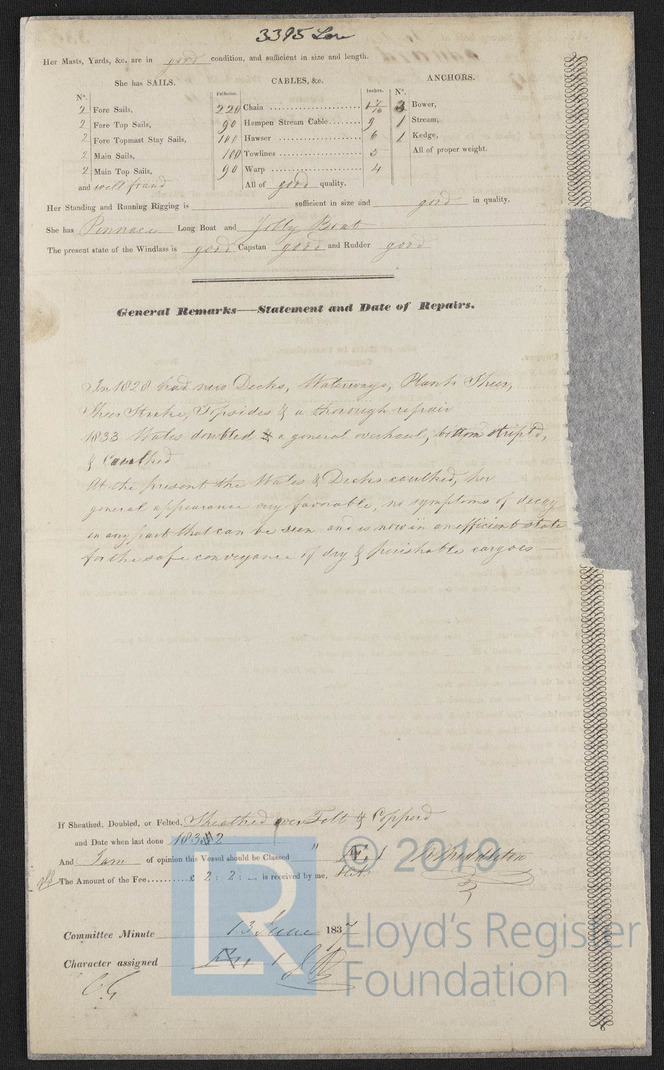 3395 Lon
Her Masts, Yards, &c. are in good condition, and sufficient in size and length.
She has SAILS. CABLES, &c. ANCHORS.
Nº. Fathoms. Inches. Nº.
2 Fore Sails, 220 Chain 1 7/16 3 Bower,
2 Fore Top Sails, 90 Hempen Stream Cable 9 1 Stream,
2 Fore Topmast Stay Sails, 100 Hawser 6 1 Kedge,
2 Main Sails, 100 Towlines 5 All of proper weight.
2 Main Top Sails, 90 Warp 4
and well found All of good quality.
Her Standing and Running Rigging is sufficient in size and good in quality.
She has Pinnace Long Boat and Jolly Boat
The present state of the Windlass is good Capstan good and Rudder good
General Remarks—Statement and Date of Repairs.
In 1828 had new Decks, Waterways, Plank Sheer,
Sheer Strake, Topsides & a thorough repair
1833 Wales doubled & a general overhaul, bottom stript,
& Caulked
At the present the Wales & Decks caulked, her
general appearance very favorable, no symptoms of decay
in any part that can be seen and is now in an efficient state
for the safe conveyance of dry & perishable cargoes
If Sheathed, Doubled, or Felted, Sheathed over Felt & Copperd
and Date when last done
And I am of opinion this Vessel should be Classed Æ 1
The Amount of the Fee £ 2: 2: - is received by me,
Committee Minute 13 June 1837
Character assigned Æ 1
C.G
© 2019
Lloyd's Register
Foundation
LR